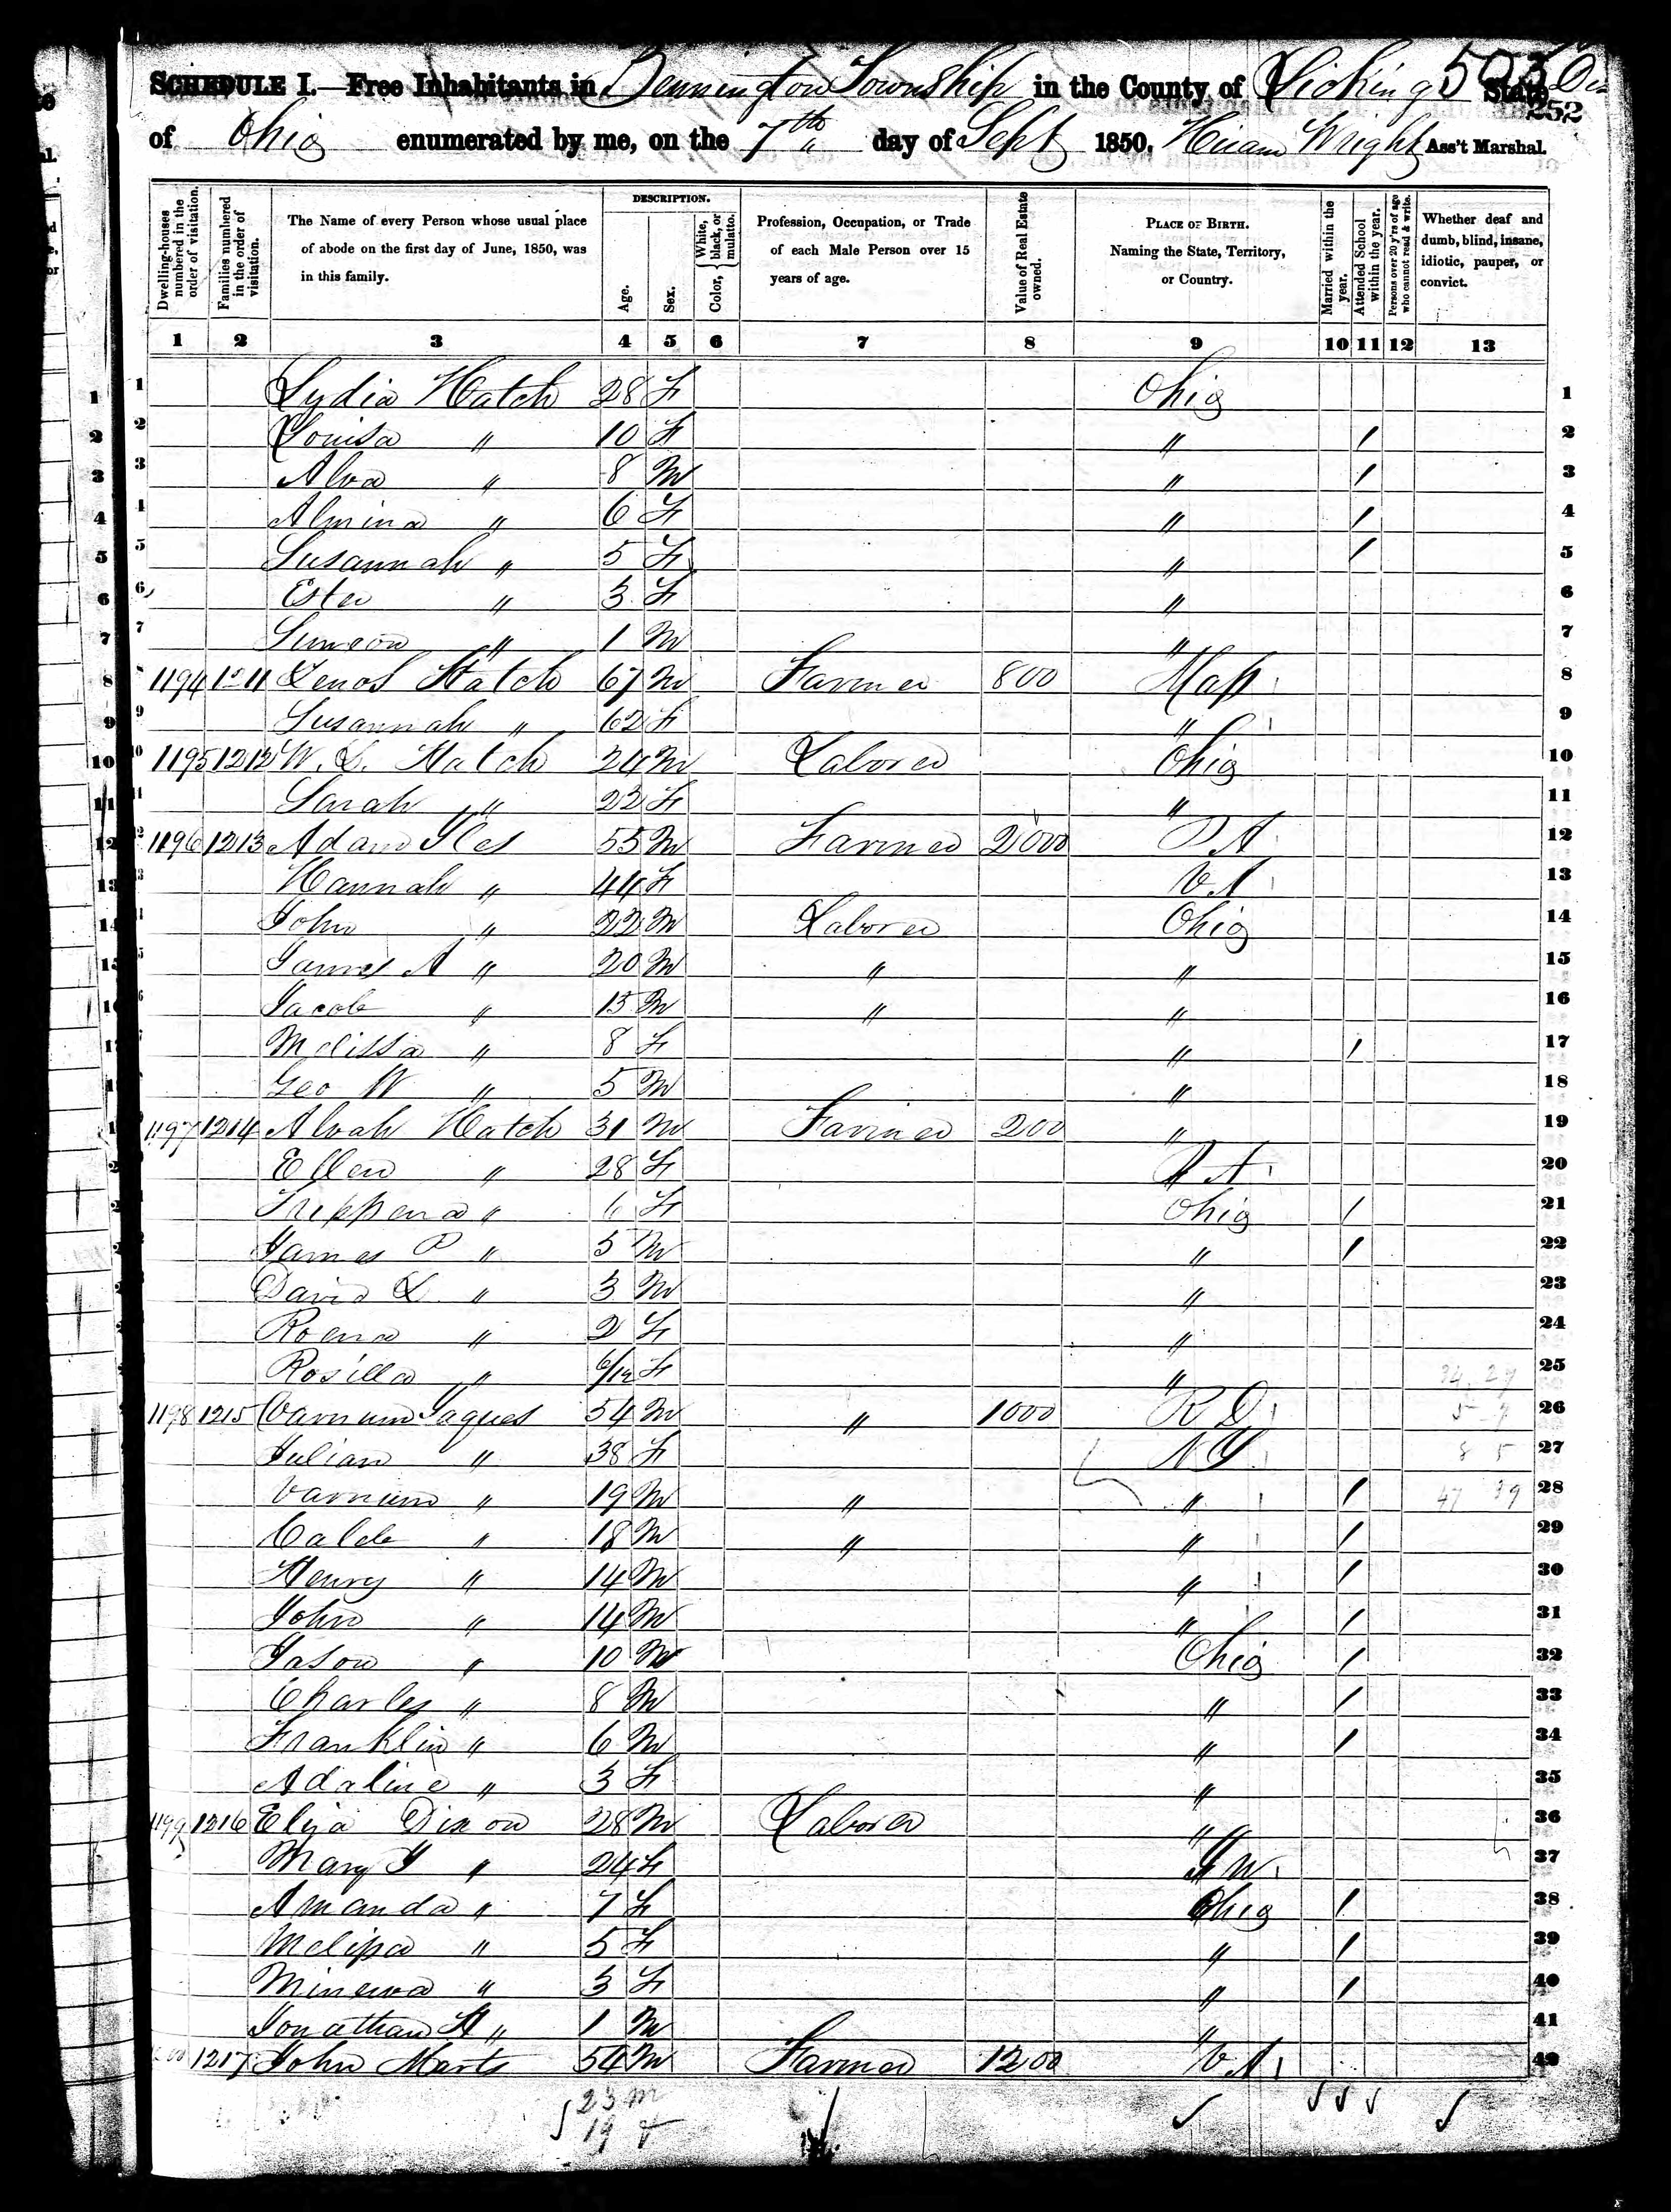 503 Dis
252
SCHEDULE I.—Free Inhabitants in Bennington Township in the County of Licking State
of Ohio enumerated by me, on the 7th day of Sept 1850. Hiram Wright Ass't Marshal.
Dwelling-houses numbered in the order of visitation.
Families numbered in the order of visitation.
The Name of every Person whose usual place of abode on the first day of June, 1850, was in this family.
DESCRIPTION.
Age.
Sex.
Color, { White, black, or mulatto.
Profession, Occupation, or Trade of each Male Person over 15 years of age.
Value of Real Estate owned.
PLACE OF BIRTH. Naming the State, Territory, or Country.
Married within the year.
Attended School within the year.
Persons over 20 y'rs of age who cannot read & write.
Whether deaf and dumb, blind, insane, idiotic, pauper, or convict.
1 2 3 4 5 6 7 8 9 10 11 12 13
1 Lydia Hatch 28 F Ohio 1
2 Louisa " 10 F " / 2
3 Alva " 8 M " / 3
4 Almina " 6 F " / 4
5 Susannah " 5 F " / 5
6 Ester " 3 F " 6
7 Simeon " 1 M " 7
8 1194 1211 Zenos Hatch 67 M Farmer 800 Mass 8
9 Susannah " 62 F " 9
10 1195 1212 W. L. Hatch 24 M Laborer Ohio 10
11 Sarah " 22 F " 11
12 1196 1213 Adam Iles 55 M Farmer 2000 PA 12
13 Hannah " 44 F VA 13
14 John " 22 M Laborer Ohio 14
15 James A " 20 M " " 15
16 Jacob " 15 M " " 16
17 Melissa " 8 F " / 17
18 Geo W " 5 M " 18
19 1197 1214 Alvah Hatch 31 M Farmer 200 " 19
20 Ellen " 28 F PA 20
21 Trippena " 6 F Ohio / 21
22 James P " 5 M " / 22
23 David L " 3 M " 23
24 Roena " 2 F " 24
25 Rosilla " 6/12 F " 25
26 1198 1215 Varnum Jaques 54 M " 1000 R D 26
27 Julian " 38 F NY 27
28 Varnum " 19 M " " / 28
29 Caleb " 18 M " " / 29
30 Henry " 14 M " / 30
31 John " 14 M " / 31
32 Jason " 10 M Ohio / 32
33 Charles " 8 M " / 33
34 Franklin " 6 M " / 34
35 Adaline " 3 F " 35
36 1199 1216 Elija Dixon 28 M Laborer " 36
37 Mary J " 24 F 37
38 Amanda " 7 F Ohio / 38
39 Melissa " 5 F " / 39
40 Minerva " 3 F " / 40
41 Jonathan H " 1 M " 41
42 1200 1217 John Marts 54 M Farmer 1200 VA 42
23 m
19 f